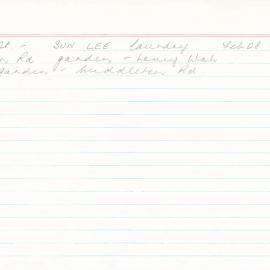 St - SUN LEE laundry Feb 08
Rd garden - Wah
garden - Middleton Rd